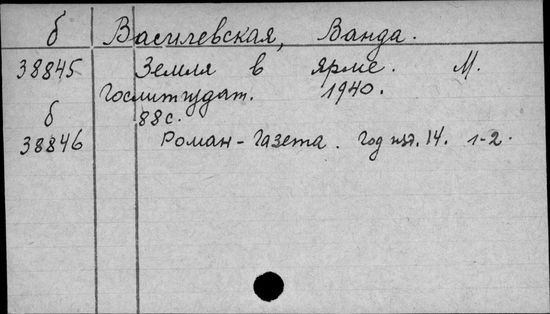 б Василевская, Ванда.
38845 Земля в ярме. М.
Гослитиздат. 1940.
б 88с.
38846 Роман-Газета. Год изд. 14. 1-2.